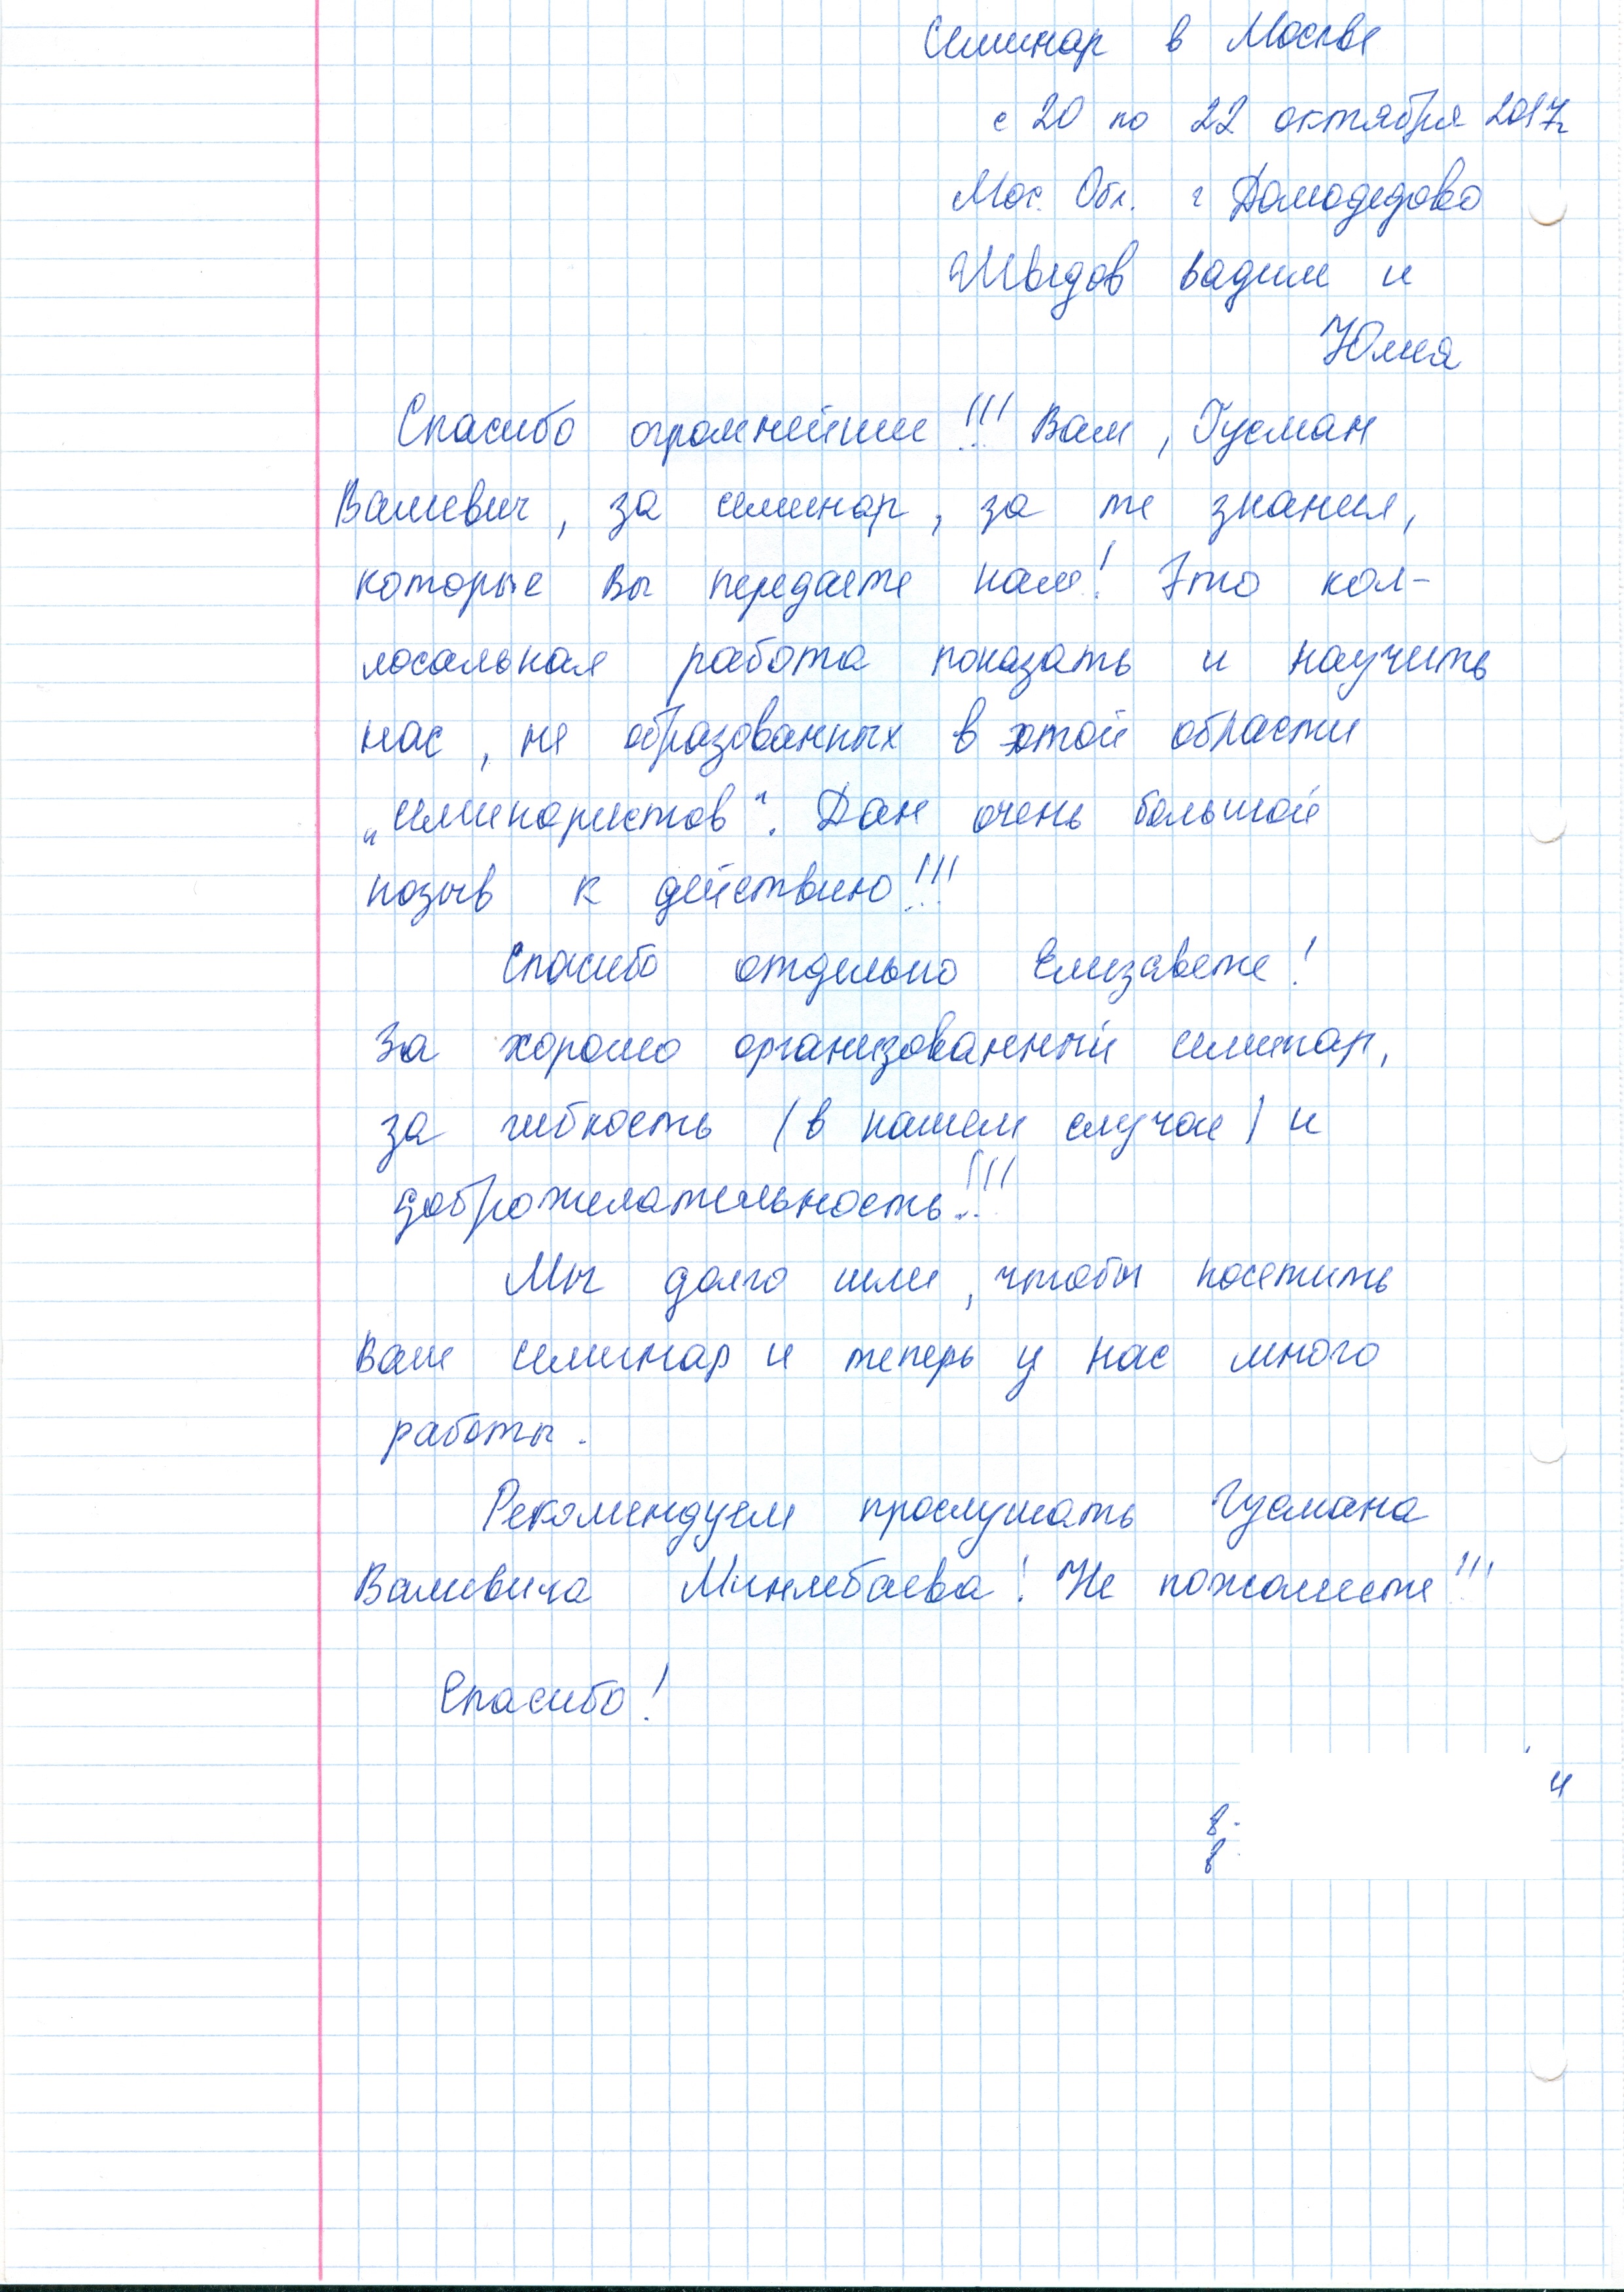 Семинар в Москве
с 20 по 22 октября 2017г
Мос. Обл. г Домодедово
Швыдов Вадим и
Юлия
Спасибо огромнейшее!!! Вам, Гусман
Валиевич, за семинар, за те знания,
которые Вы передаете нам! Это кол-
лосальная работа показать и научить
нас, не образованных в этой области
„семинаристов“. Дан очень большой
позыв к действию!!!
Спасибо отдельно Елизавете!
За хорошо организованный семинар,
за гибкость (в нашем случае) и
доброжелательность!!!
Мы долго шли, чтобы посетить
Ваш семинар и теперь у нас много
работы.
Рекомендуем прослушать Гусмана
Валиевича Минлебаева! Не пожалеете!!!
Спасибо!
и
8-
8